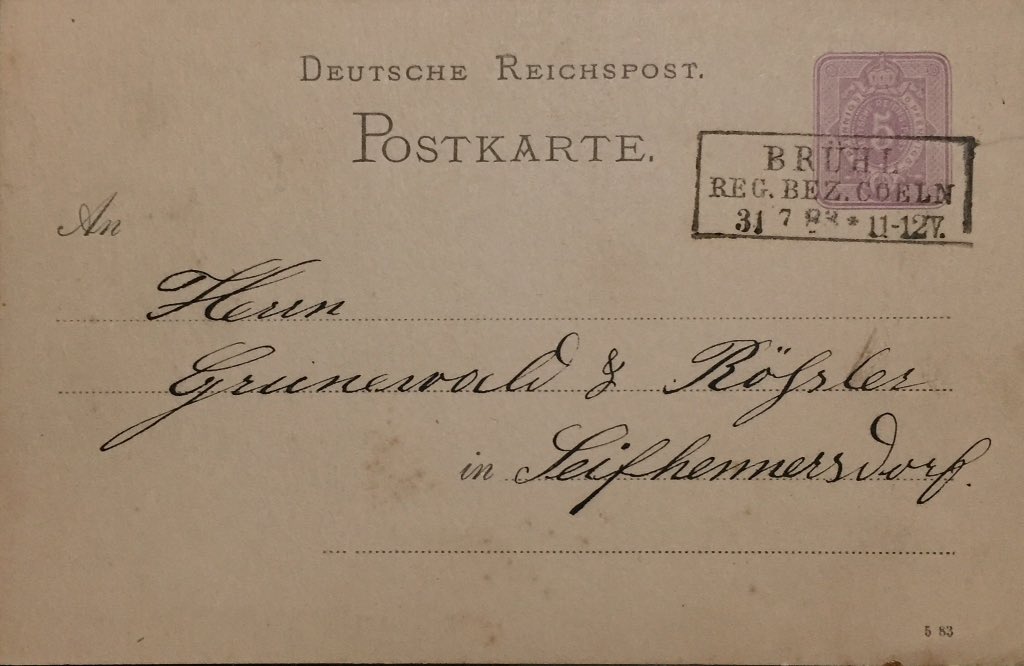 DEUTSCHE REICHSPOST.
POSTKARTE.
5
BRÜHL
REG. BEZ. COELN
31 7 83 * 11-12V.
An
Herrn
Grunewald & Rößler
in Seifhennersdorf.
5 83